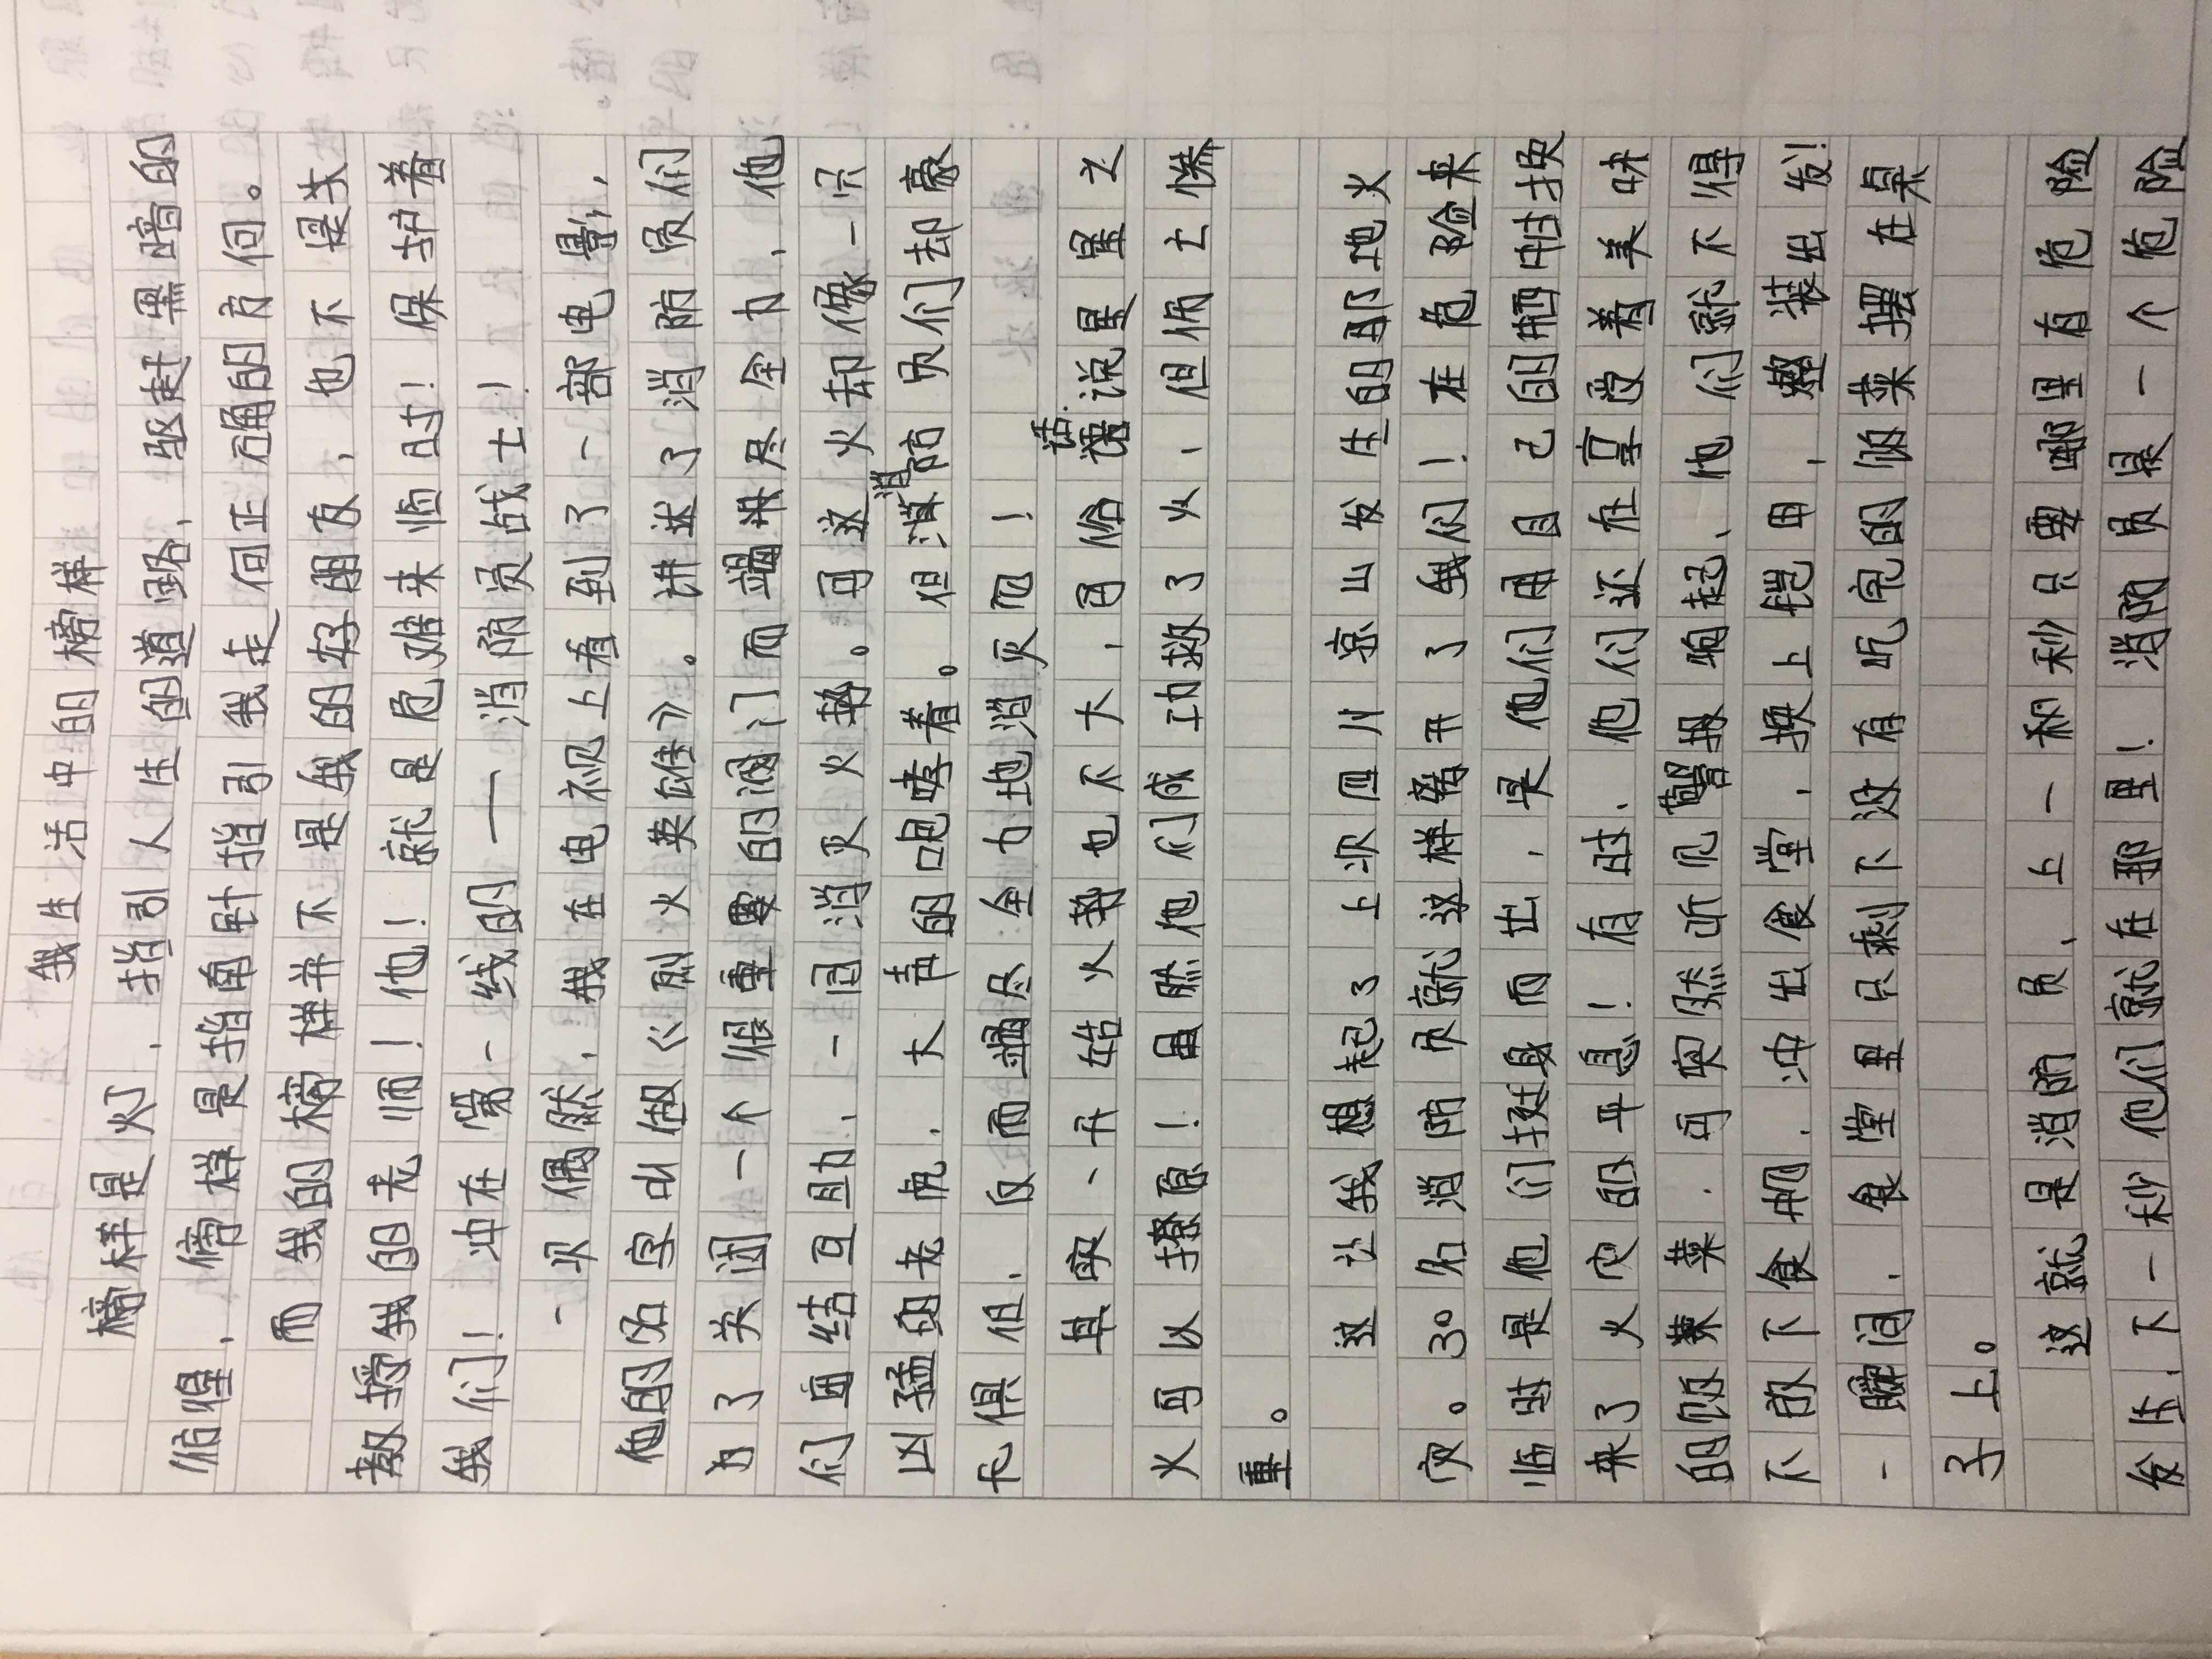 我生活中的榜样
榜样是火丁，指引人生的道路，驱赶黑暗的
彷惶，傍样是指南针指引我走向正确的方向。
而我的榜样并不是我的好朋友，也不是关
教授我的老师！他！就是危难来临时！保护着
我们！冲在第一线的——消防员战士！
一次偶然，我在电视上看到了一部电影，
他的名字叫做《烈火英雄》。讲述了消防员们
为了关闭一个很重要的阀门而竭尽全力，他
们团结互助，一同消灭火势。可这火却像一只
凶猛的老虎，大声的咆哮着。但消防员们却豪
不惧怕，反而竭尽全力地消灭而！
其实一开始火势也不大，因俗话说星星之
火可以撩原！虽然他们成功救了火，但伤亡惨
重。
这让我想起了上次四川凉山发生的那地火
灾。30名消防员就这样离开了我们！在危险来
临时是他们挺身而出，是他们用自己的牺牲换
来了火灾的平息！有时，他们还在享受着美味
的饭菜，可突然听见警报响起，他们就不得
不放下食物，冲出食堂，换上铠甲，整装出发！
一瞬间，食堂里只剩下没有吃完的饭菜摆在桌
子上。
这就是消防员，上一秒只要哪里有危险
发生，下一秒他们就在那里！消防员是一个危险